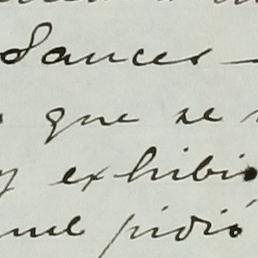 Sances
que se
y exhibio
pidió